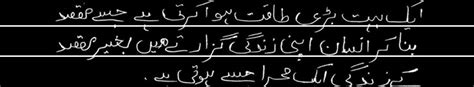 ایک بہت بڑی طاقت ہوا کرتی ہے جسے مقصد
بنا کر انسان اپنی زندگی گزارتے ہیں بغیر مقصد
کے زندگی ایک صحرا جیسے ہوتی ہے۔